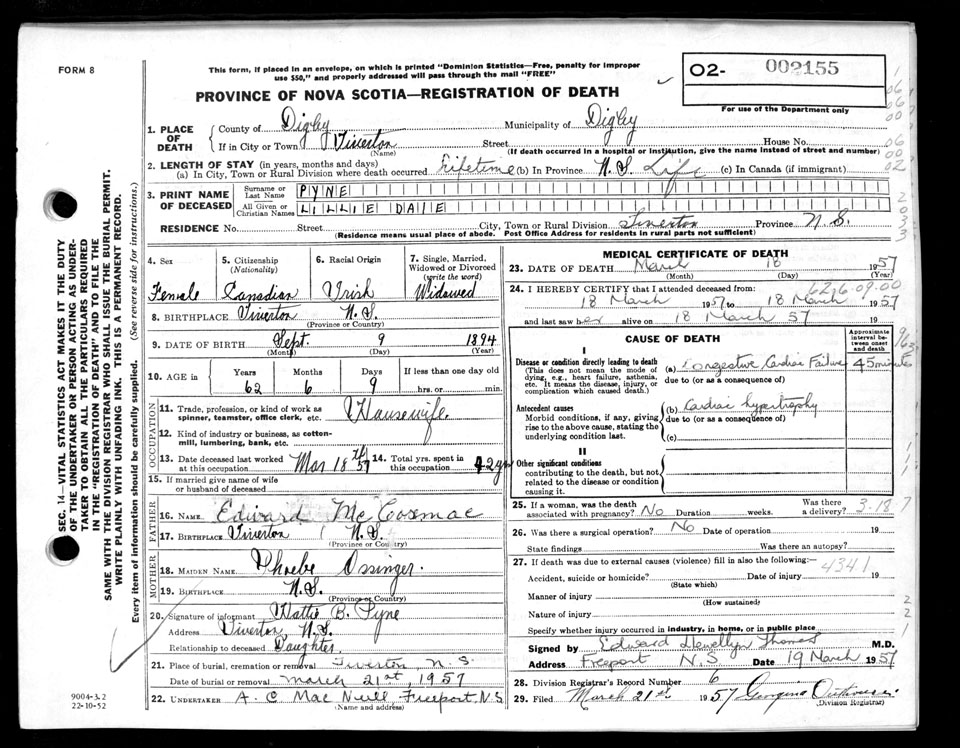 FORM 8
This form, if placed in an envelope, on which is printed "Dominion Statistics—Free, penalty for improper
use $50," and properly addressed will pass through the mail "FREE"
O2- 002155
For use of the Department only
PROVINCE OF NOVA SCOTIA—REGISTRATION OF DEATH
1. PLACE OF DEATH { County of Digby Municipality of Digby
If in City or Town Tiverton Street House No.
(Name) (If death occurred in a hospital or institution, give the name instead of street and number)
2. LENGTH OF STAY (in years, months and days)
(a) In City, Town or Rural Division where death occurred Lifetime (b) In Province N.S. Life (c) In Canada (if immigrant)
3. PRINT NAME OF DECEASED { Surname or Last Name PYNE
All Given or Christian Names LILLIE DALE
RESIDENCE No. Street City, Town or Rural Division Tiverton Province N.S.
(Residence means usual place of abode. Post Office Address for residents in rural parts not sufficient)
4. Sex
Female
5. Citizenship
(Nationality)
Canadian
6. Racial Origin
Irish
7. Single, Married,
Widowed or Divorced
(write the word)
Widowed
8. BIRTHPLACE Tiverton N.S.
(Province or Country)
9. DATE OF BIRTH Sept. 9 1894
(Month) (Day) (Year)
10. AGE in Years Months Days If less than one day old
62 6 9 hrs. or min.
OCCUPATION
11. Trade, profession, or kind of work as
spinner, teamster, office clerk, etc. Housewife
12. Kind of industry or business, as cotton-
mill, lumbering, bank, etc.
13. Date deceased last worked
at this occupation Mar 18th 57
14. Total yrs. spent in
this occupation 42 yrs
15. If married give name of wife
or husband of deceased
FATHER
16. NAME Edward McCormac
17. BIRTHPLACE Tiverton N.S.
(Province or Country)
MOTHER
18. MAIDEN NAME Phoebe Ossinger.
19. BIRTHPLACE N.S.
(Province or Country)
20. Signature of informant B. Pyne
Address Tiverton N.S.
Relationship to deceased Daughter.
21. Place of burial, cremation or removal Tiverton, N.S.
Date of burial or removal March 21st, 1957
22. UNDERTAKER A. C. MacNeill, Freeport, N.S
(Name and address)
MEDICAL CERTIFICATE OF DEATH
23. DATE OF DEATH March 18 1957
(Month) (Day) (Year)
24. I HEREBY CERTIFY that I attended deceased from:
6216-09-00
18 March 1957 to 18 March 1957
and last saw her alive on 18 March 57 19
CAUSE OF DEATH
Approximate
interval between
onset
and death
I
Disease or condition directly leading to death
(This does not mean the mode of
dying, e.g., heart failure, asthenia,
etc. It means the disease, injury, or
complication which caused death.)
(a) Congestive Cardiac Failure 45 minutes
due to (or as a consequence of)
Antecedent causes
Morbid conditions, if any, giving
rise to the above cause, stating the
underlying condition last.
(b) Cardiac hypertrophy
due to (or as a consequence of)
(c)
II
Other significant conditions
contributing to the death, but not
related to the disease or condition
causing it.
25. If a woman, was the death
associated with pregnancy? No Duration weeks. Was there
a delivery? 3-18-7
26. Was there a surgical operation? No Date of operation 19
State findings Was there an autopsy?
27. If death was due to external causes (violence) fill in also the following:—
4341
Accident, suicide or homicide? Date of injury 19
(State which)
Manner of injury
(How sustained)
Nature of injury
Specify whether injury occurred in industry, in home, or in public place
Signed by Edward Llewellyn Thomas M.D.
Address Freeport N.S Date 19 March 1957
28. Division Registrar's Record Number 6
29. Filed March 21st 1957 Georgina Outhouse
(Division Registrar)
9004-3.2
22-10-52
SEC. 14—VITAL STATISTICS ACT MAKES IT THE DUTY
OF THE UNDERTAKER OR PERSON ACTING AS UNDER-
TAKER TO OBTAIN ALL THE PARTICULARS REQUIRED
IN THE "REGISTRATION OF DEATH" AND TO FILE THE
SAME WITH THE DIVISION REGISTRAR WHO SHALL ISSUE THE BURIAL PERMIT.
WRITE PLAINLY WITH UNFADING INK. THIS IS A PERMANENT RECORD.
Every item of information should be carefully supplied. (See reverse side for instructions.)